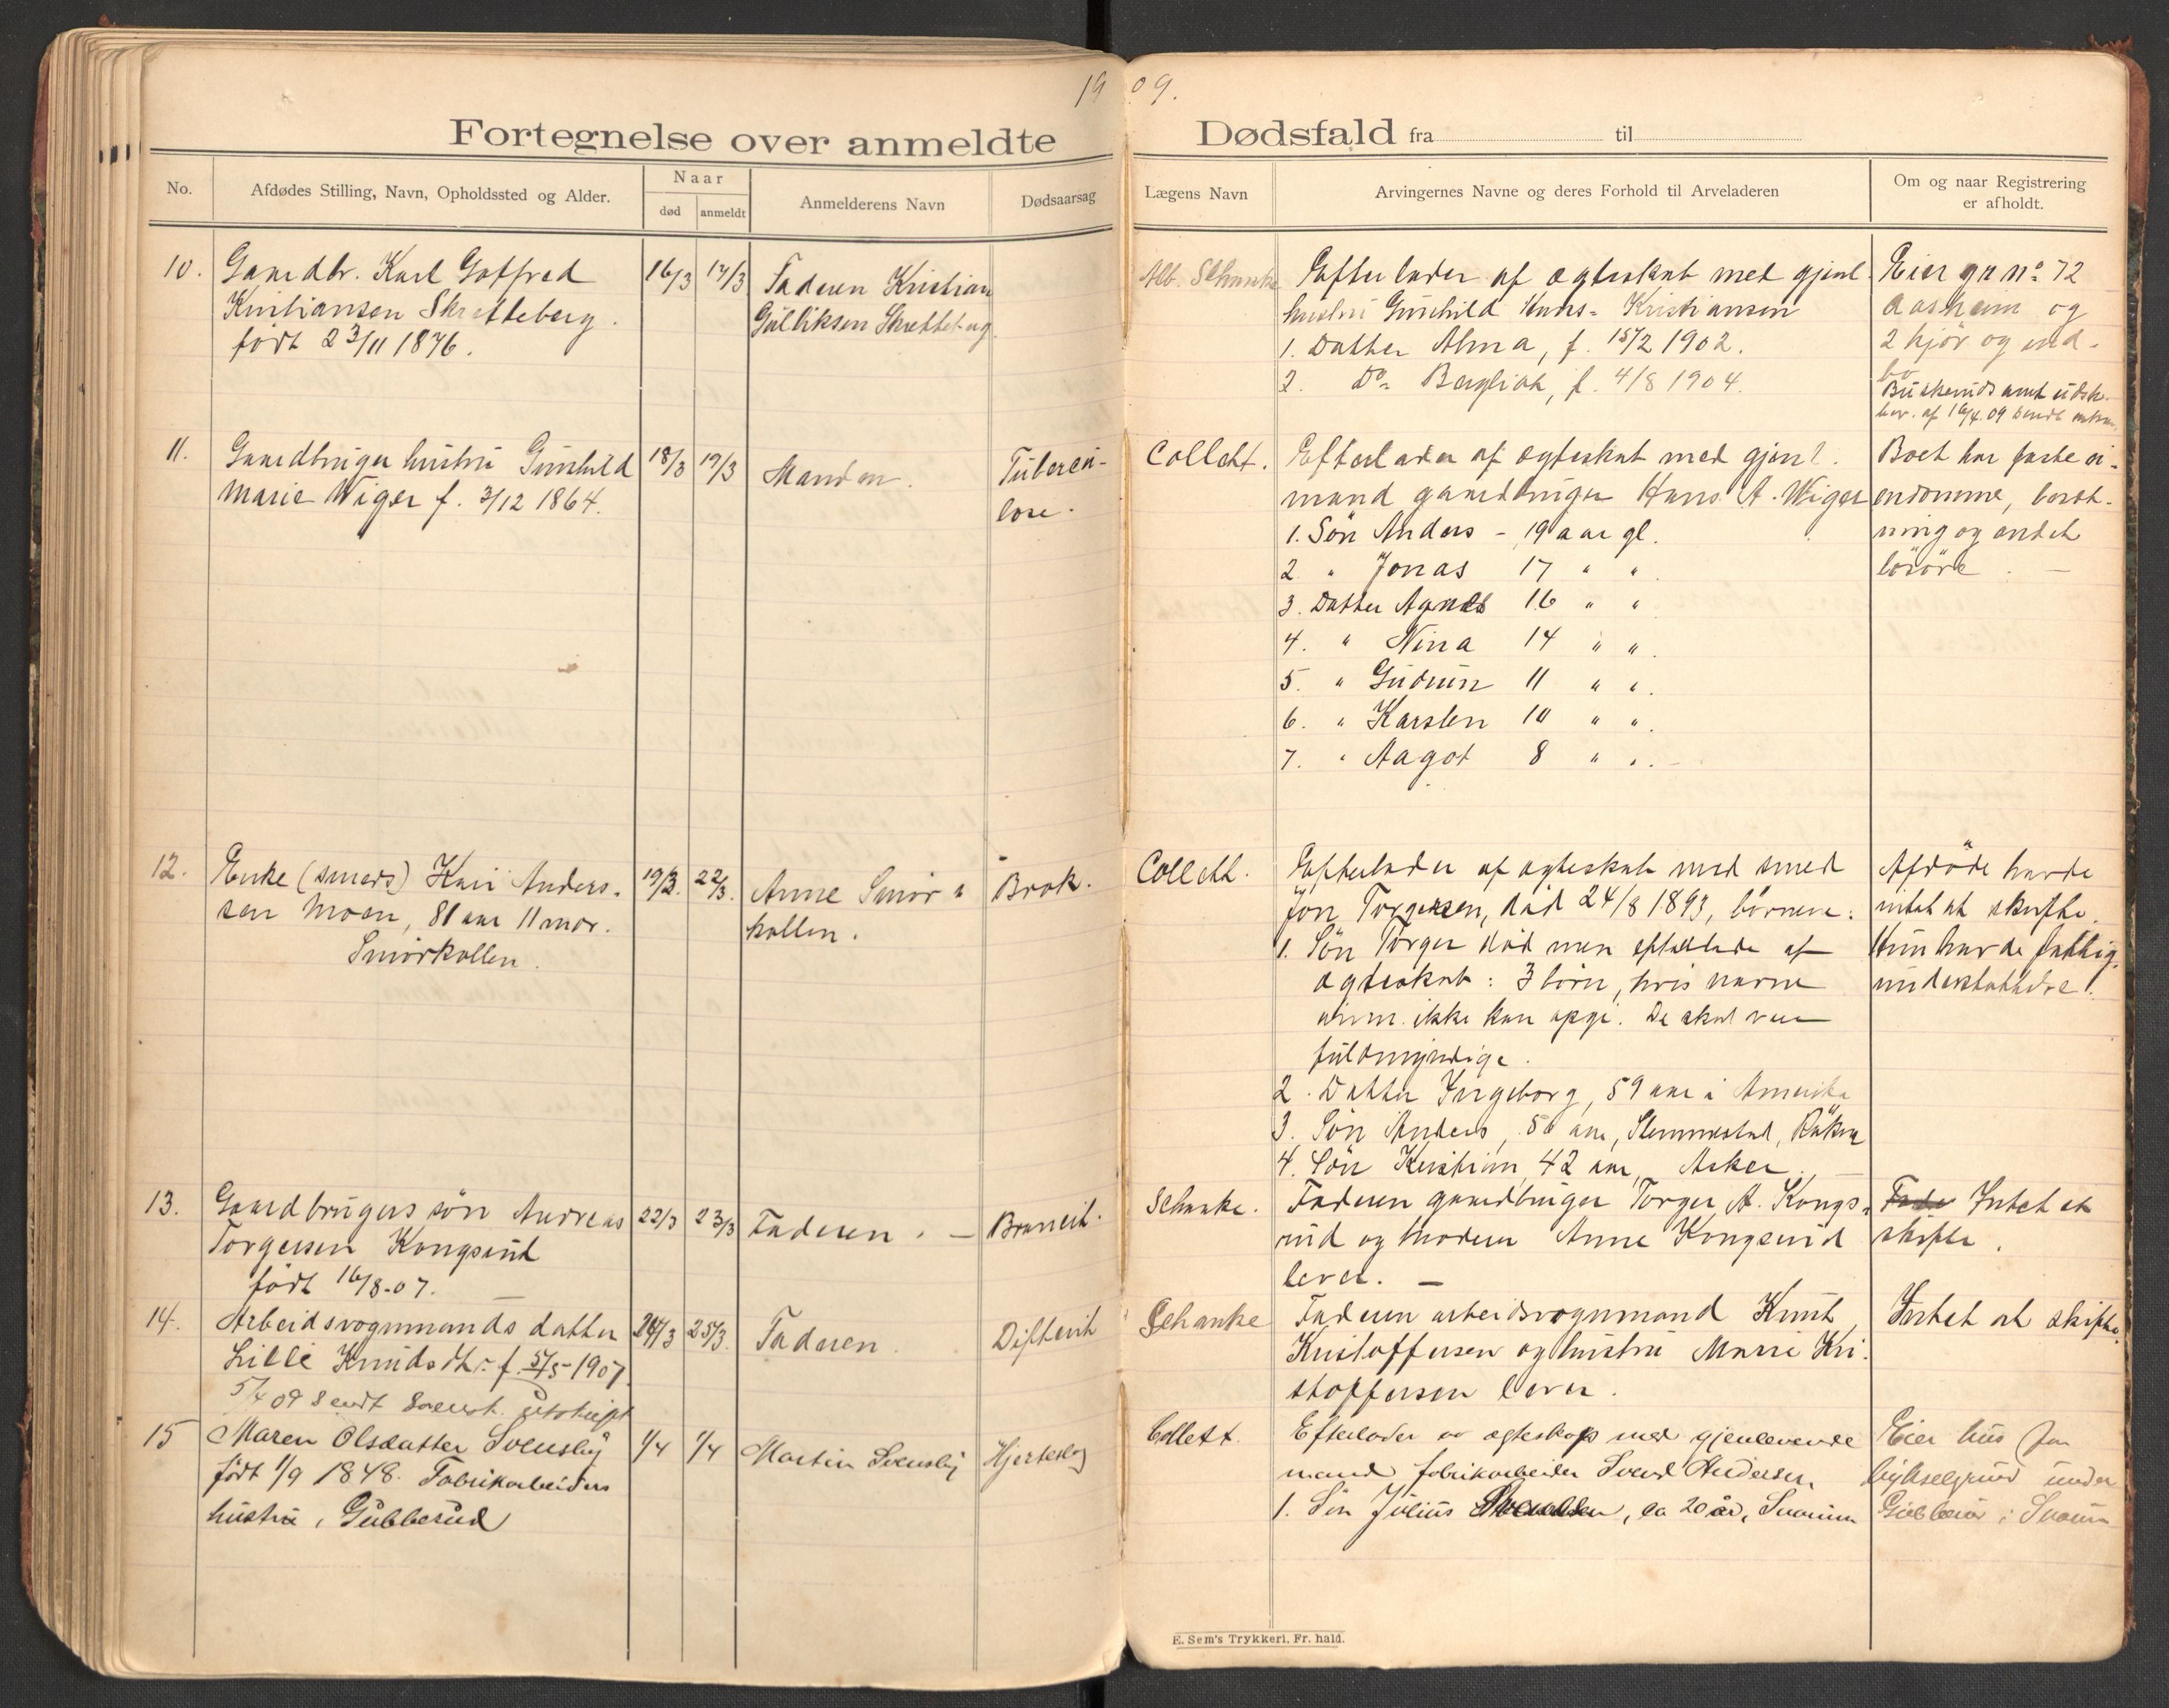 1909.
Fortegnelse over anmeldte Dødsfald fra til
No.
Afdødes Stilling, Navn, Opholdssted og Alder.
Naar
død
anmeldt
Anmelderens Navn
Dødsaarsag
Lægens Navn
Arvingernes Navne og deres Forhold til Arveladeren
Om og naar Registrering
er afholdt.
10.
Gaardbr. Karl Gotfred
Kristiansen Skretteberg.
født 23/11 1876.
16/3
17/3
Faderen Kristian
Gulliksen Skretteberg.
Alb. Schanke
Efterlader af ægteskab med gjenl.
hustru Gunhild Hans= Kristiansen
1. Datter Alma, f. 15/2 1902.
2. Do= Bergliot, f. 4/8 1904.
Eier gr no. 72
Aasheim og
2 kjör og ind-
bo
Buskeruds amt udsk.
11.
Gaardbruger hustru Gunhild
Marie Wiger f. 3/12 1864.
18/3
19/3
Manden.
Tuberku-
lose.
Collett.
Efterlader af ægteskab med gjenl.
mand gaardbruger Hans A. Wiger
1. Sön Anders - 19 aar gl.
2. " Jonas 17 " ".
3. Datter Agnes 16 " "
4. " Nina 14 " ".
5. " Gudrun 11 " ".
6. " Karsten 10 " ".
7. " Aagot 8 " ". -
Boet har faste ei-
endomme, besæt-
ning og andet
lösöre. -
12.
Enke (smeds) Kari Anders-
sen Moen, 81 aar 11 mdr.
Smörkollen.
19/3.
22/3.
Anne Smör=
kollen.
Brok.
Collett.
Efterlader af ægteskab med smed
Jön Torgersen, död 24/8 1893, börnene:
1. Sön Torger död men efterlader af
ægteskab: 3 börn, hvis navne
anm. ikke kan opgi. De skal være
fuldmyndige.
2. Datter Ingeborg, 59 aar i Amerika
3. Sön Anders, 50 aar, Slemmestad, Röken
4. Sön Kristian, 42 aar, Asker. -
Afdöde havde
intet at skifte.
Hun havde fattig-
understöttelse.
13.
Gaardbrugers sön Andreas
Torgersen Kongsrud
født 16/8-07. -
22/3
23/3
Faderen. -
Broncit.
Schanke.
Faderen gaardbruger Torger A. Kongs=
rud og moderen Anne Kongsrud
lever. -
Intet at
skifte.
14.
Arbeidsvognmands datter
Lilli Knudsdt: f. 5/5-1907.
5/4 09 sendt utskrift
24/3
25/3.
Faderen.
Difterit
Schanke
Faderen arbeidsvognmand Knut
Kristoffersen og hustru Marie Kri-
stoffersen lever.
Intet at skifte.
15
Maren Olsdatter Svensby
født 1/9 1848. Fabrikarbeiders
hustru, Gubberud
1/4
1/4
Martin Svensby
Hjerteslag
Collett.
Efterlader av ægteskap med gjenlevende
mand, fabrikarbeider Svend Andersen,
1. Sön Julius Svendsen, ca 20 år, Snarum
Eier hus paa
bygselgrund under
Gubberud i Snarum
E. Sem's Trykkeri, Fr. hald.